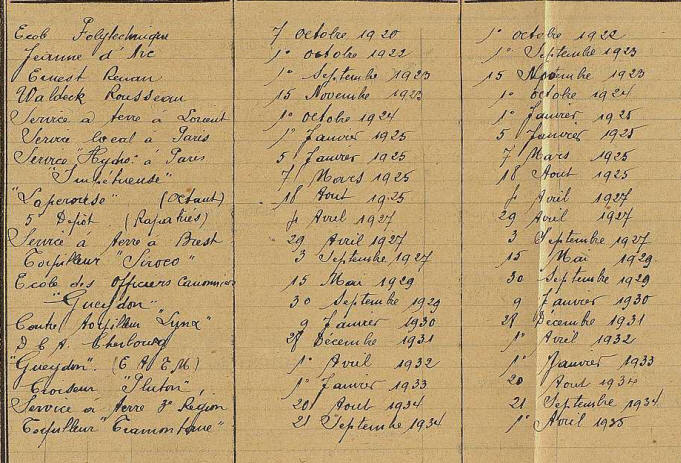 Ecole Polytechnique 7 octobre 1920 1° octobre 1922
Jeanne d'Arc 1° octobre 1922 1° Septembre 1923
Ernest Renan 1° Septembre 1923 15 Novembre 1923
Waldeck Rousseau 15 Novembre 1923 1° octobre 1924
Service à terre à Lorient 1° octobre 1924 1° Janvier 1925
Service local à Paris 1° Janvier 1925 5 Janvier 1925
Service "Hydro" à Paris 5 Janvier 1925 7 Mars 1925
"Impétueuse" 7 Mars 1925 18 Aout 1925
"Laperouse" (Octant) 18 Aout 1925 4 Avril 1927
5 Dépôt (Rapatriés) 4 Avril 1927 29 Avril 1927
Service à terre à Brest 29 Avril 1927 3 Septembre 1927
Torpilleur "Siroco" 3 Septembre 1927 15 Mai 1929
Ecole des Officiers Canonniers 15 Mai 1929 30 Septembre 1929
"Gueydon" 30 Septembre 1929 9 Janvier 1930
Contre Torpilleur "Lynx" 9 Janvier 1930 28 Décembre 1931
D C A Cherbourg 28 Décembre 1931 1° Avril 1932
"Gueydon". (E A T M) 1° Avril 1932 1° Janvier 1933
Croiseur "Pluton", 1° Janvier 1933 20 Aout 1934
Service à terre 3° Région 20 Aout 1934 21 Septembre 1934
Torpilleur "Tramontane" 21 Septembre 1934 1° Avril 1935